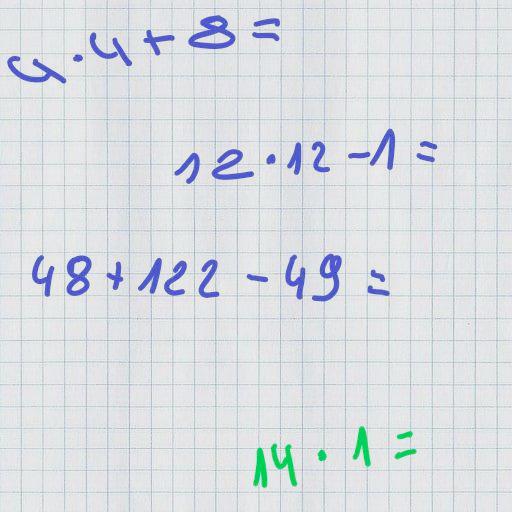 4·4+8=
12·12-1=
48+122-49=
14·1=